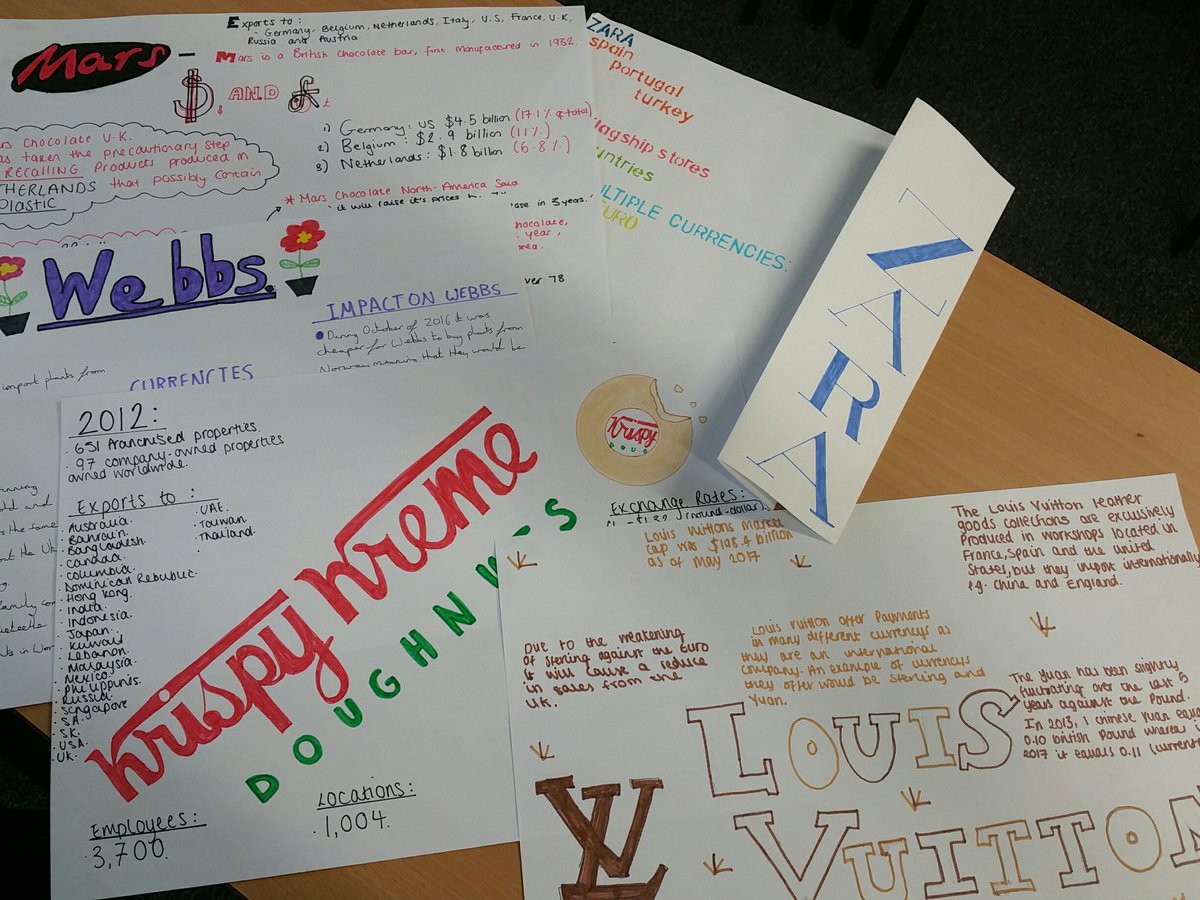 Mars
Exports to:
- Germany, Belgium, Netherlands, Italy, U.S, France, U.K,
Russia and Austria.
Mars is a British Chocolate bar, first Manufactured in 1932.
$, AND £:
1) Germany: US $4.5 billion (17.1% of total)
2) Belgium: $2.9 billion (11%)
3) Netherlands: $1.8 billion (6.8%)
Mars Chocolate U.K.
has taken the precautionary step
RECALLING Products produced in
NETHERLANDS that possibly contain
Plastic
* Mars Chocolate North-America Said
it will raise it's prices
in 3 years.
chocolate,
year,
over 78
ZARA
Spain
Portugal
turkey
flagship stores
countries
MULTIPLE CURRENCIES:
EURO
ZARA
Webbs.
IMPACT ON WEBBS
During October of 2016 it was
cheaper for Webbs to buy plants from
Norway meaning that they would be
import plants from
CURRENCIES
2012:
. 631 franchised properties.
. 97 company-owned properties
owned worldwide.
Exports to:
. Australia
. Bahrain.
. Bangladesh.
. Canada.
. Columbia.
. Dominican Republic.
. Hong Kong.
. India.
. Indonesia.
. Japan.
. Kuwait
. Lebanon.
. Malaysia.
. Mexico.
. Philippinis.
. Russia.
. Singapore
. SA.
. SK.
. USA.
. UK.
. UAE.
. Taiwan
. Thailand.
Krispy Kreme
DOUGHNUTS
Krispy
DOUG
Exchange Rates:
(pound-dollar).
Employees:
. 3,700.
Locations:
. 1,004.
Louis Vuittons market
cap was $198.4 billion
as of May 2017
The Louis Vuitton leather
goods collections are exclusively
Produced in workshops located in
France, Spain and the United
States, but they import internationally
e.g. China and England.
Due to the weakening
of Sterling against the Euro
it will cause a reduce
in sales from the
U.K.
Louis Vuitton offer Payments
in many different currencys as
they are an international
company. An example of currencys
they offer would be sterling and
Yuan.
The Yuan has been slightly
fluctuating over the last 5
years against the Pound.
In 2013, 1 chinese Yuan equal
0.10 British Pound whereas
2017 it equals 0.11
LV
LOUIS
VUITTON